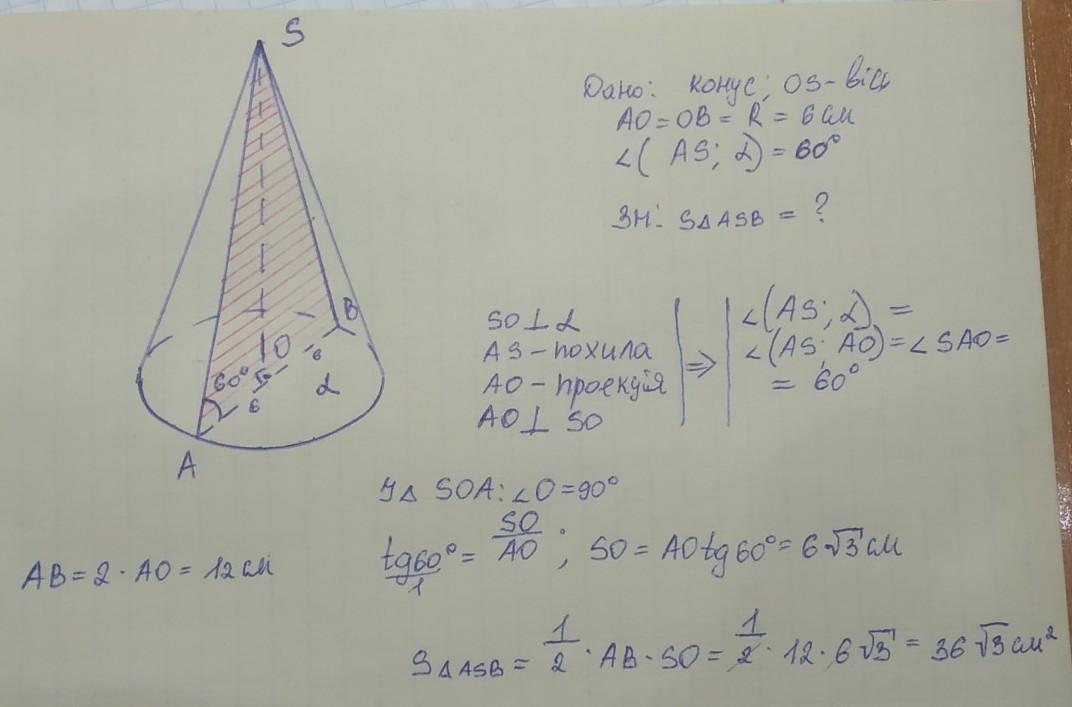 S
Дано: конус; OS-вісь
AO=OB=R=6см
∠(AS; α)=60°
Зн: S△ASB = ?
B
O
6
60°
6
α
A
SO⊥α
AS-похила
AO-проекція
AO⊥SO
⇒
∠(AS; α) =
∠(AS; AO)=∠SAO=
= 60°
У△ SOA: ∠O=90°
tg60°/1 = SO/AO; SO = AOtg60°= 6√3 см
AB=2·AO=12см
S△ASB = 1/2 · AB·SO = 1/2 · 12·6√3 = 36√3 см²